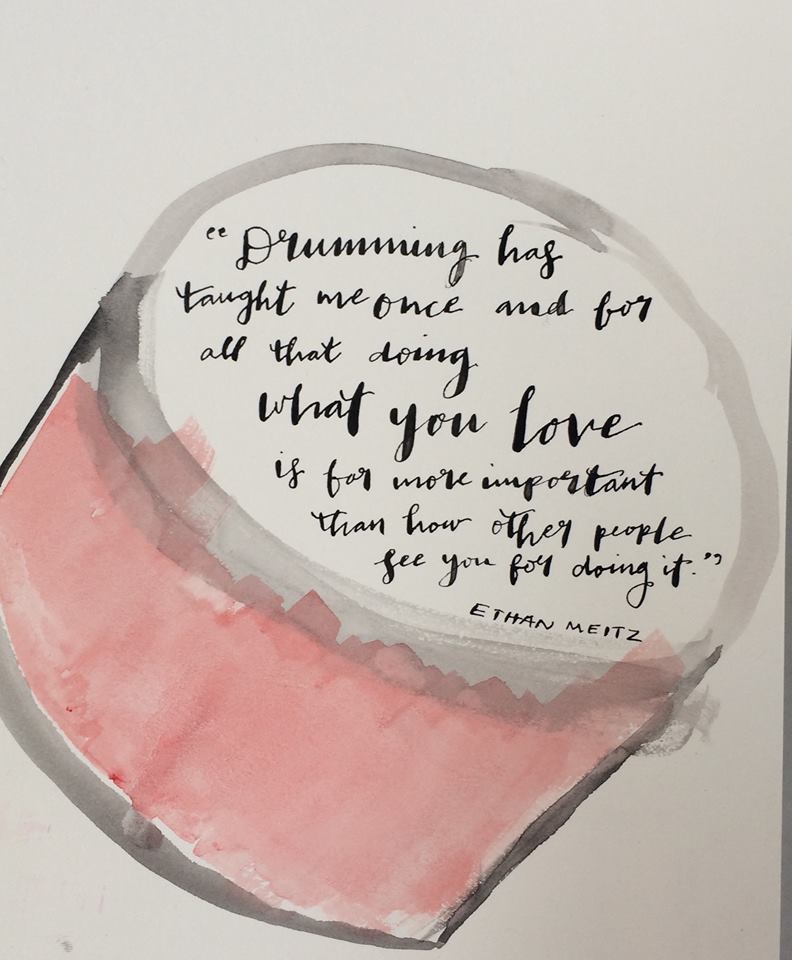 “Drumming has
taught me once and for
all that doing
what you love
is far more important
than how other people
see you for doing it.”
ETHAN MEITZ